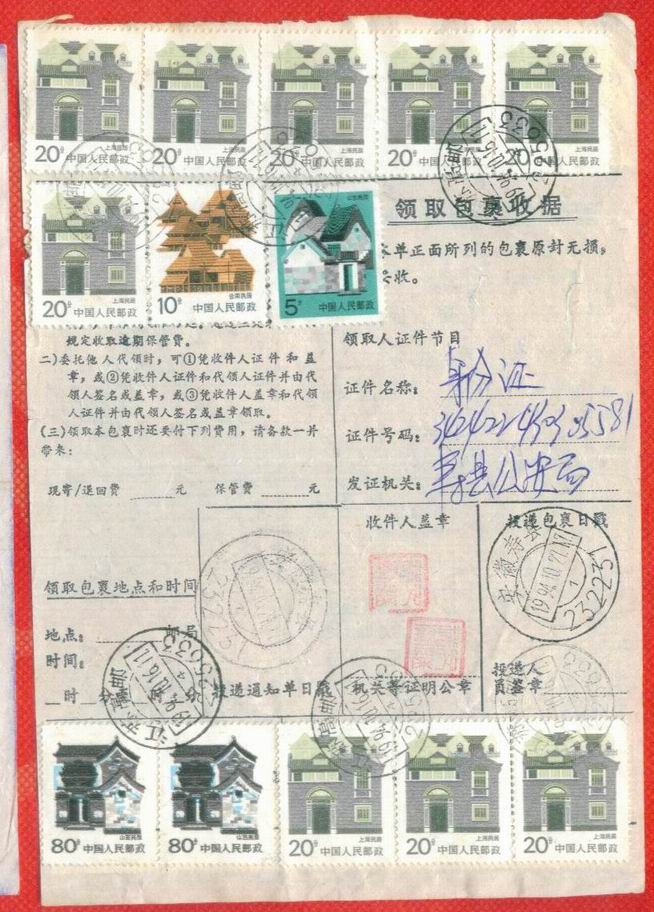 上海民居 上海民居 上海民居 上海民居 上海民居
20分 中国人民邮政 20分 中国人民邮政 20分 中国人民邮政 20分 中国人民邮政 20分 中国人民邮政
领取包裹收据
上海民居 云南民居
20分 中国人民邮政 10分 中国人民邮政 5分 中国人民邮政
本单正面所列的包裹原封无损，
收。
规定收取逾期保管费。
二)委托他人代领时，可①凭收件人证件和盖
章，或②凭收件人证件和代领人证件并由代
领人签名或盖章，或③凭收件人盖章和代领
人证件并由代领人签名或盖章领取。
(三)领取本包裹时还要付下列费用，请备款一并
带来：
现寄/退回费 元 保管费 元
领取人证件节目
证件名称： 身份证
证件号码：
发证机关： 寿县公安局
收件人盖章
投递包裹日戳
安徽寿县
1994.10.22.17
232231
领取包裹地点和时间
地点： 邮局
时间：
时 分
投递通知单日戳
机关等证明公章
投递人
员签章
山西民居 山西民居 上海民居 上海民居 上海民居
80分 中国人民邮政 80分 中国人民邮政 20分 中国人民邮政 20分 中国人民邮政 20分 中国人民邮政